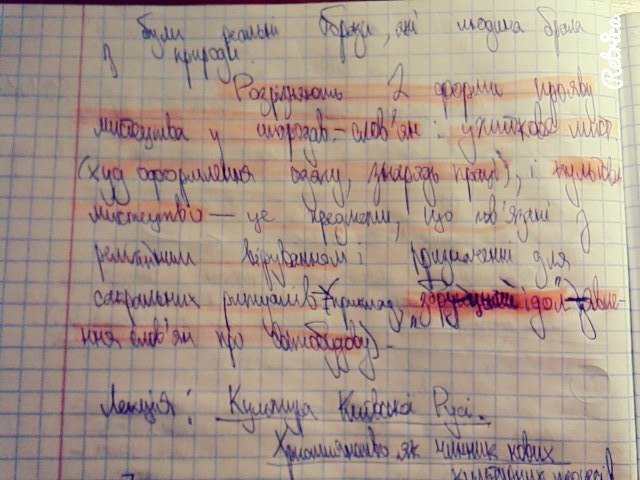 були реальні образи, які людина брала
з природи.
Розрізняють 2 форми прояву
мистецтва у стародав. слов'ян: ужиткове мист
(худ оформлення одягу, знарядь праці), і культове
мистецтво — це предмети, що пов'язані з
релігійним віруванням і призначені для
сакральних ритуалів (приклад, " ідол" - уявле-
ння слов'ян про світобудову) -
Лекція: Культура Київської Русі.
Християнство як чинник нових
культурних процесів
Retrica